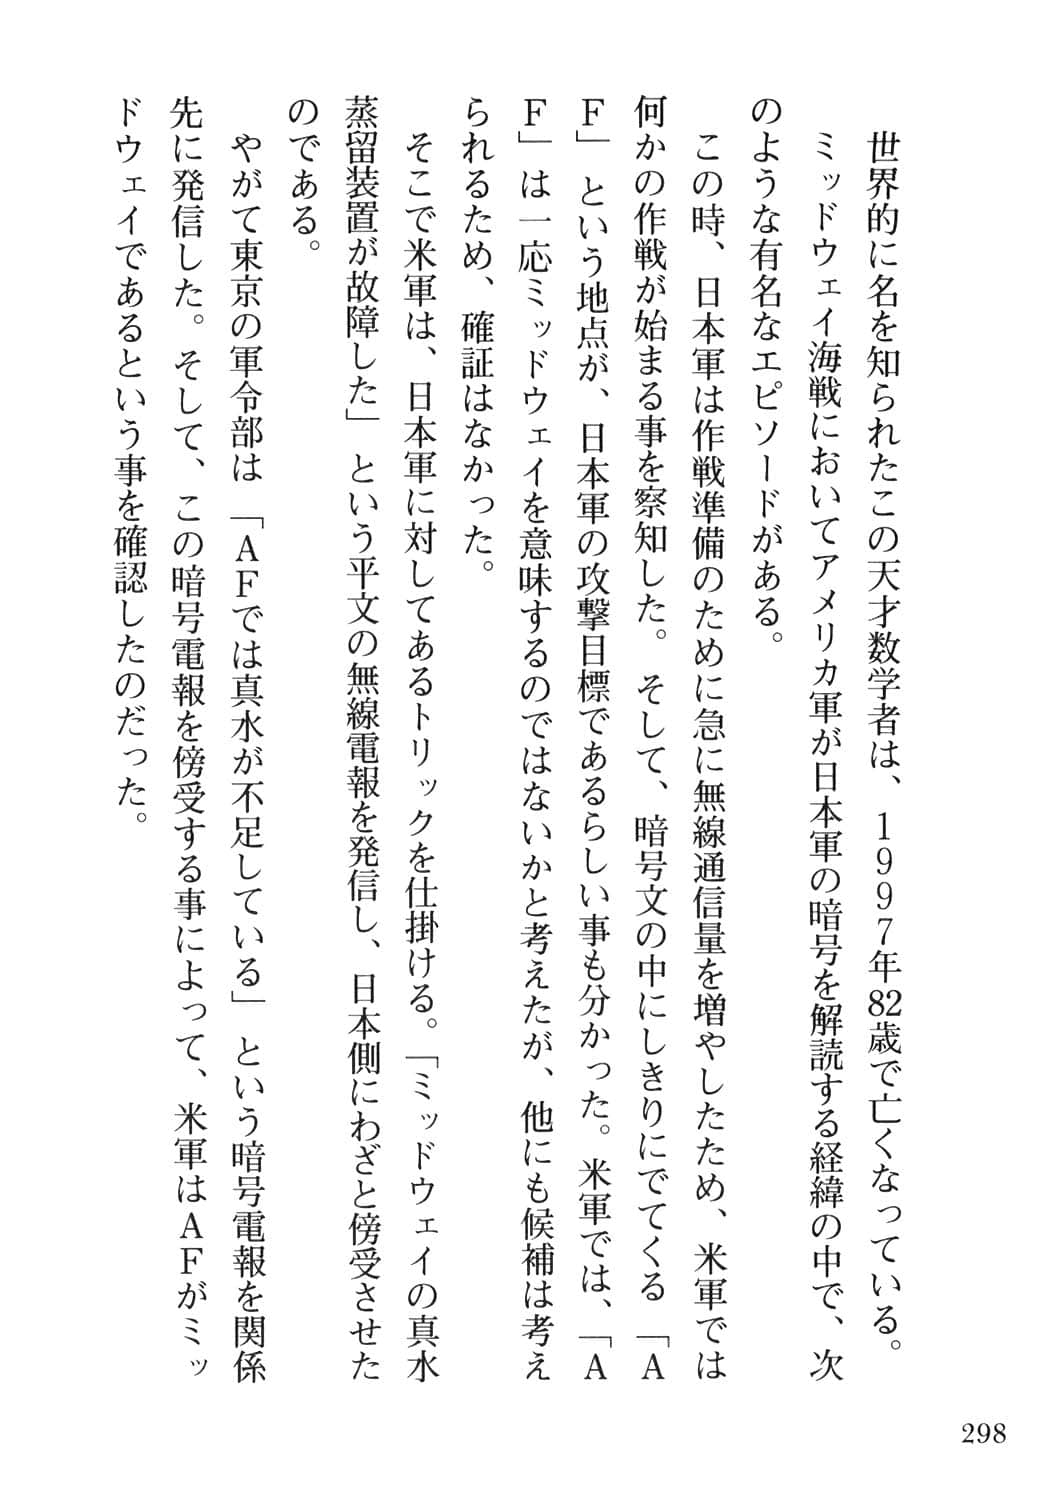 世界的に名を知られたこの天才数学者は、1997年82歳で亡くなっている。
ミッドウェイ海戦においてアメリカ軍が日本軍の暗号を解読する経緯の中で、次
のような有名なエピソードがある。
この時、日本軍は作戦準備のために急に無線通信量を増やしたため、米軍では
何かの作戦が始まる事を察知した。そして、暗号文の中にしきりにでてくる「A
F」という地点が、日本軍の攻撃目標であるらしい事も分かった。米軍では、「A
F」は一応ミッドウェイを意味するのではないかと考えたが、他にも候補は考え
られるため、確証はなかった。
そこで米軍は、日本軍に対してあるトリックを仕掛ける。「ミッドウェイの真水
蒸留装置が故障した」という平文の無線電報を発信し、日本側にわざと傍受させた
のである。
やがて東京の軍令部は「AFでは真水が不足している」という暗号電報を関係
先に発信した。そして、この暗号電報を傍受する事によって、米軍はAFがミッ
ドウェイであるという事を確認したのだった。
298